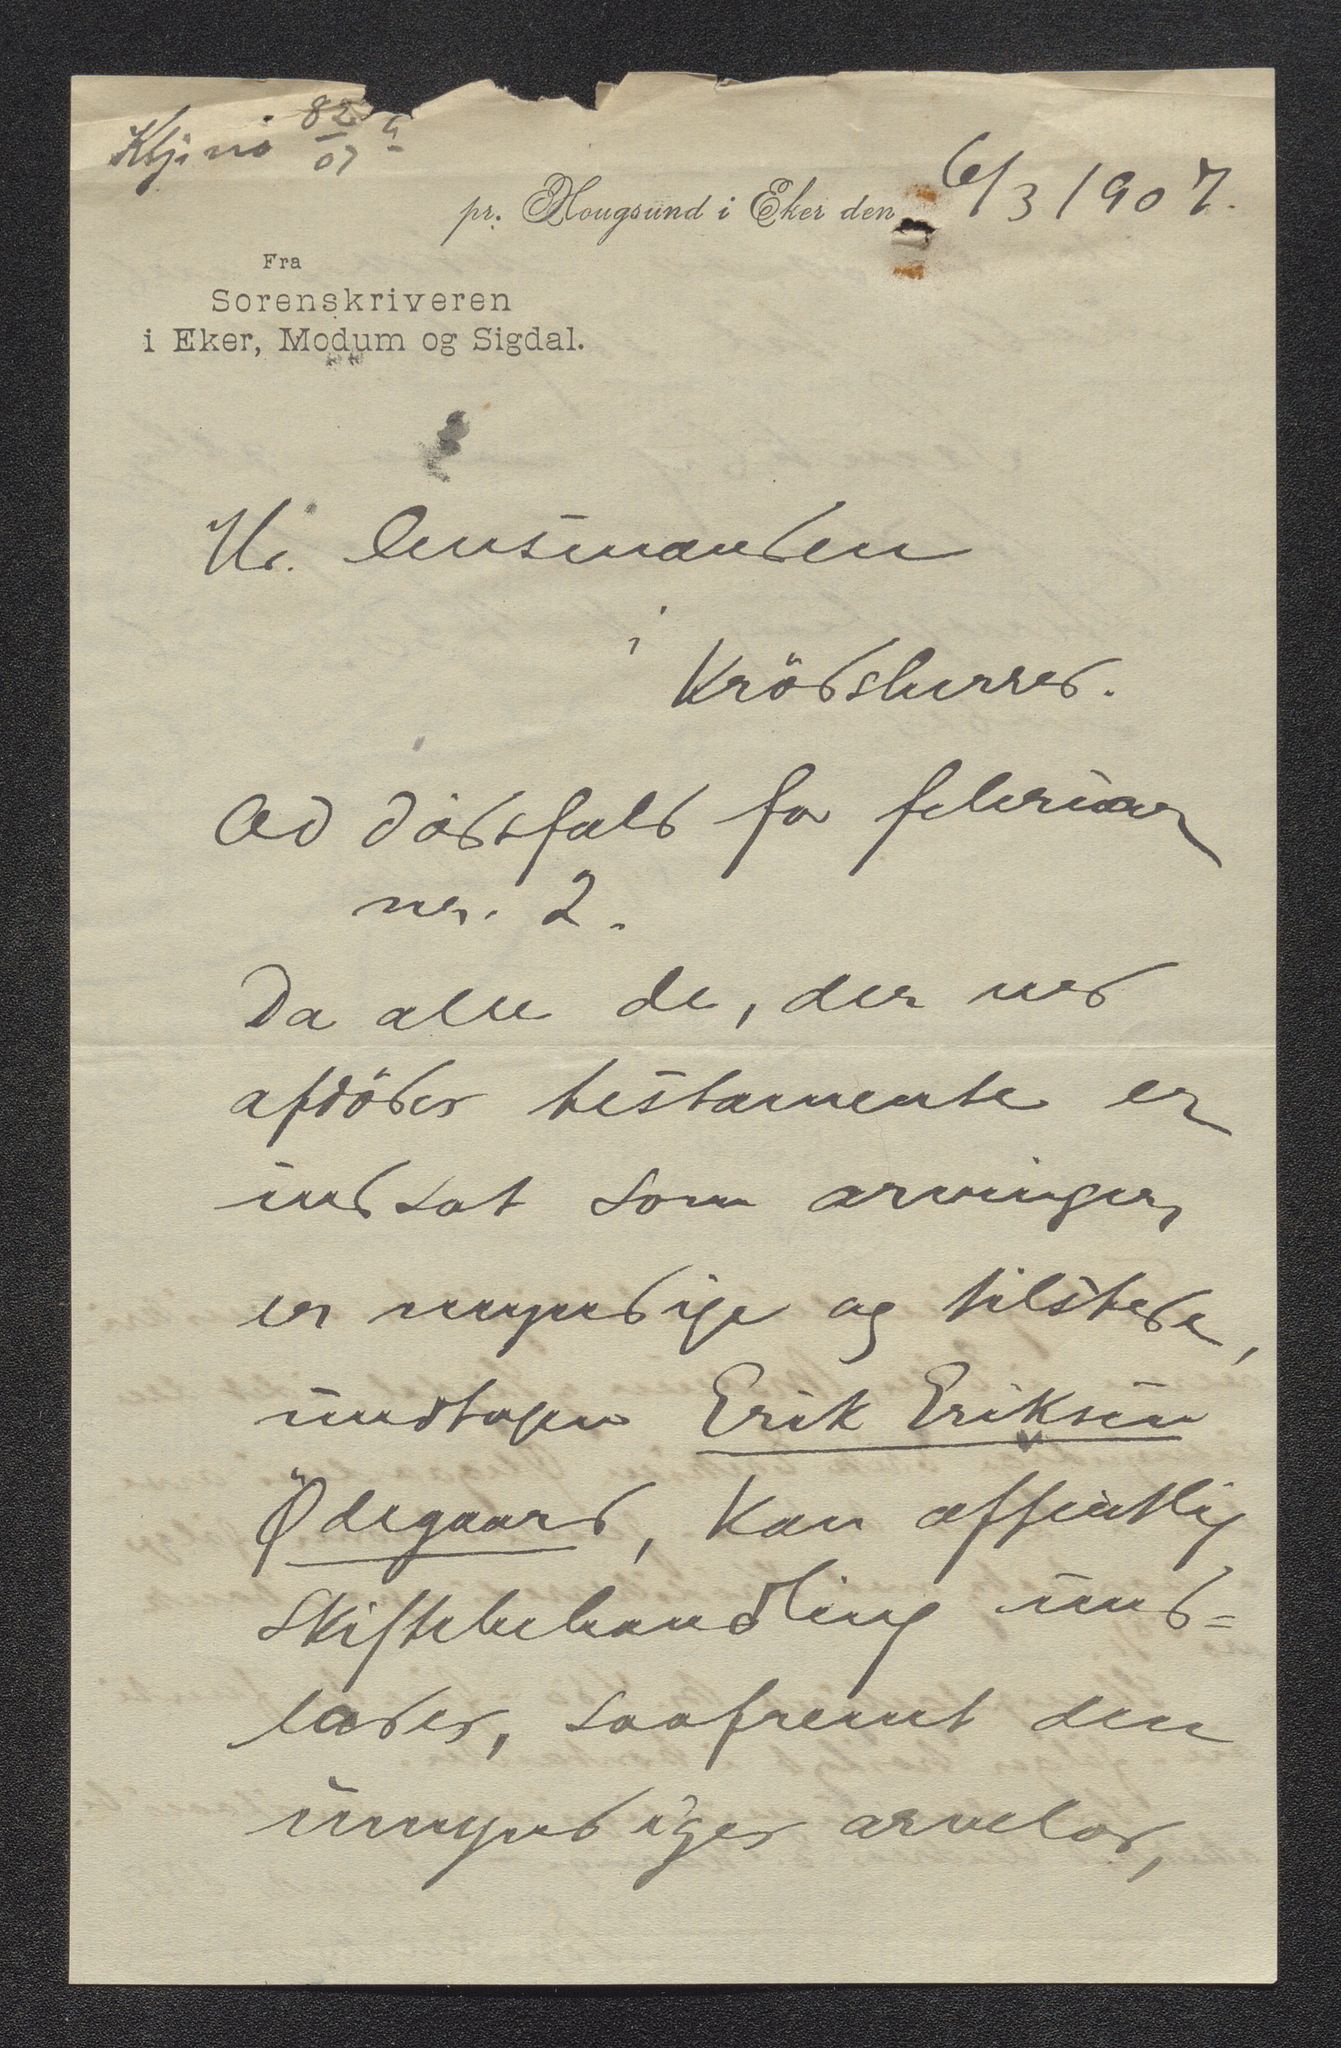 Kbj. nr. 82/07
pr. Hougsund i Eker den 6/3 1907.
Fra
Sorenskriveren
i Eker, Modum og Sigdal.
Hr. lensmanden
i
Krödsherred.
Ad dödsfald for februar
nr. 2.
Da alle de, der ved
afdödes testamente er
indsat som arvinger,
er myndige og tilstede,
undtagen Erik Eriksen
Ødegaard, kan offentlig
skiftebehandling und-
lades, saafremt den
umyndiges arvelod,